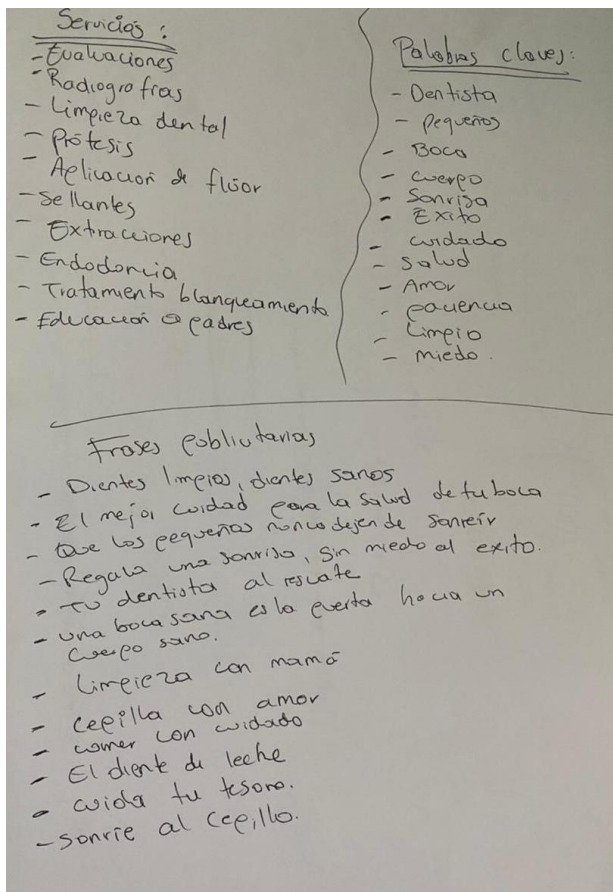 Servicios :
- Evaluaciones
- Radiografras
- Limpieza dental
- Prótesis
- Aplicación de flúor
- Sellantes
- Extracciones
- Endodoncia
- Tratamiento blanqueamiento
- Educación a padres
Palabras claves:
- Dentista
- pequeños
- Boca
- cuerpo
- Sonrisa
- Exito
- cuidado
- Salud
- Amor
- paciencia
- Limpio
- miedo.
Frases publicitarias
- Dientes limpios, dientes sanos
- El mejor cuidad para la salud de tu boca
- Que los pequeños nunca dejen de sonreír
- Regala una sonrisa, sin miedo al exito.
- Tu dentista al rescate
- una boca sana es la puerta hacia un
cuerpo sano.
- Limpieza con mamá
- cepilla con amor
- comer con cuidado
- El diente de leche
- cuida tu tesoro.
- Sonrie al cepillo.